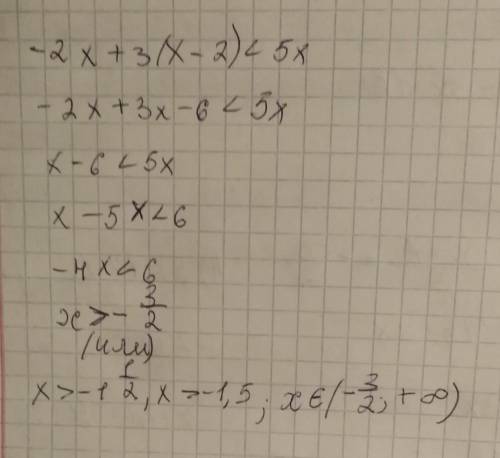 -2x + 3(x - 2) < 5x
-2x + 3x - 6 < 5x
x - 6 < 5x
x - 5x < 6
-4x < 6
x > - 3/2
(или)
x > -1 1/2, x > -1,5; x ∈ (-3/2; +∞)